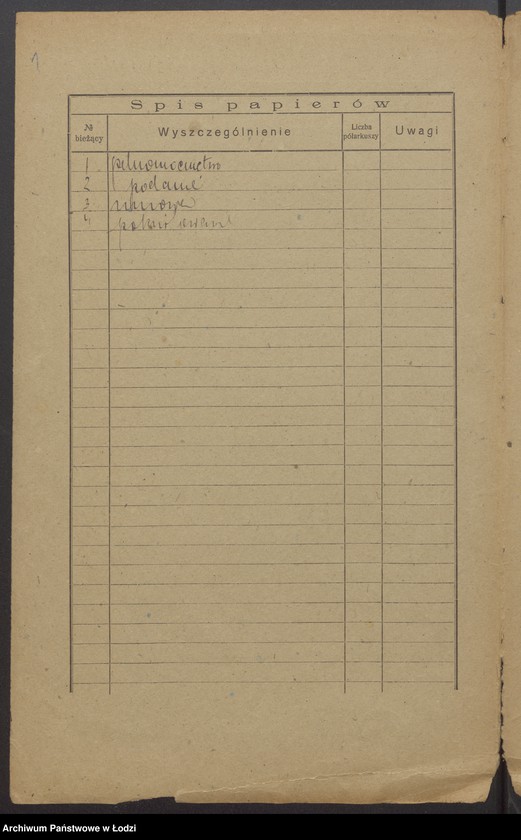 1
Spis papierów
№ bieżący Wyszczególnienie Liczba półarkuszy Uwagi
1 pełnomocnictwo
2 podanie
3 umowa
4
Archiwum Państwowe w Łodzi